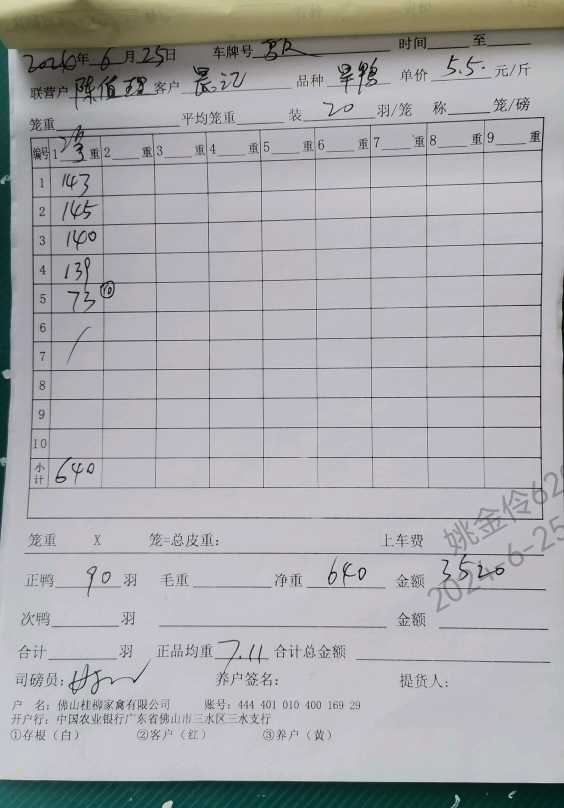 2024年6月25日 车牌号 时间 至
联营户 陈值理 客户 晨记 品种 旱鸭 单价 5.5. 元/斤
笼重 平均笼重 装 20 羽/笼 称 笼/磅
编号 1 重 2 重 3 重 4 重 5 重 6 重 7 重 8 重 9 重
1 143
2 145
3 140
4 139
5 73 ⑩
6
7
8
9
10
小计 640
笼重 X 笼=总皮重: 上车费
正鸭 90 羽 毛重 净重 640 金额 3520
次鸭 羽 金额
合计 羽 正品均重 7.11 合计总金额
司磅员: 养户签名: 提货人:
户 名: 佛山桂柳家禽有限公司 账号: 444 401 010 400 169 29
开户行: 中国农业银行广东省佛山市三水区三水支行
①存根（白） ②客户（红） ③养户（黄）
姚金伶62
2024-6-25